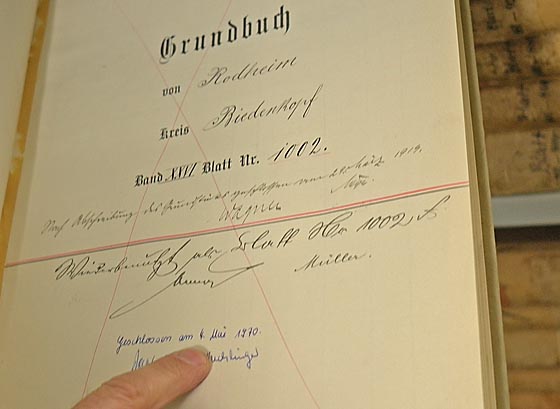 Grundbuch
von Rodheim
Kreis Biedenkopf
Band XVII Blatt Nr. 1002.
Nach Abschreibung des Grundstücks geschlossen am 29. März 1919.
Wagner
Wiederbenutzt als Blatt No 1002 A
Müller.
Geschlossen am 4. Mai 1970.